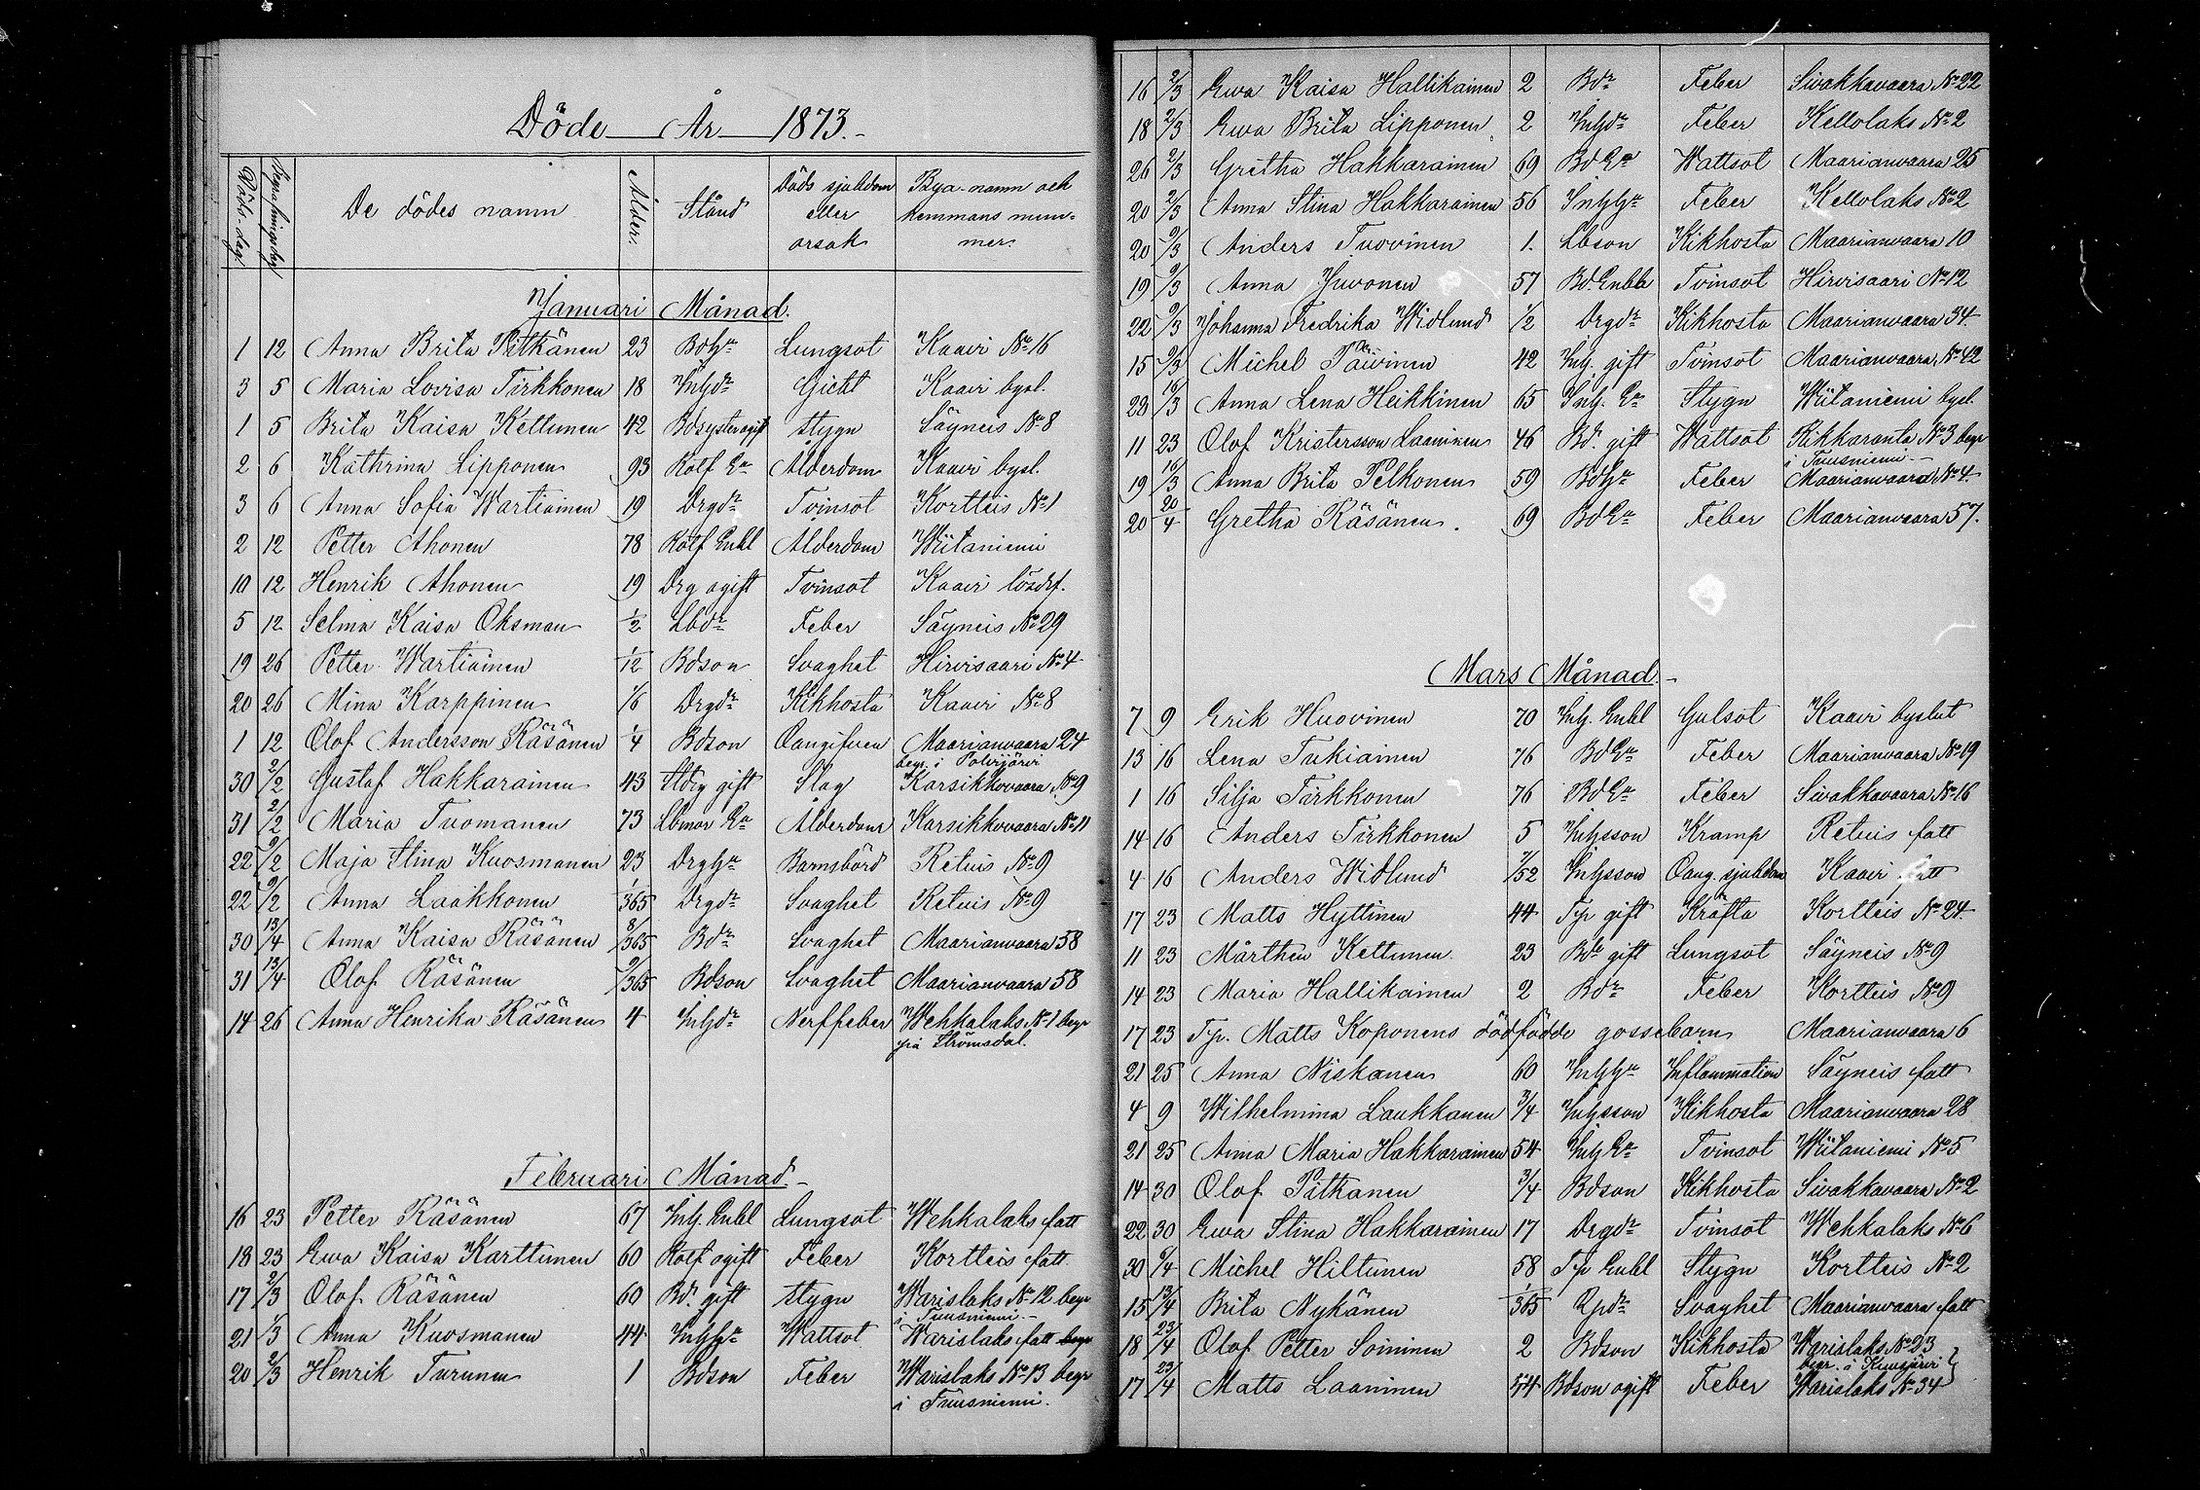 Döde År 1873.
Döds-dag Begrafningsdag De dödes namn Ålder. Stånd Döds sjukdom eller orsak Bya-namn och hemmans num- mer.
Januari Månad.
1 12 Anna Brita Pitkänen 23 BdH:u Lungsot Kaavi No 16
3 5 Maria Lovisa Tirkkonen 18 Inhdr Gicht Kaavi bysl.
1 5 Brita Kaisa Kettunen 42 Bdsyster ogift Stygn Säyneis No 8
2 6 Kathrina Lipponen 93 Rotf Ea Ålderdom Kaavi bysl.
3 6 Anna Sofia Wartiainen 19 Drgdr Tvinsot Kortteis No 1
2 12 Petter Ahonen 78 Rotf Enkl Ålderdom Wiitaniemi
10 12 Henrik Ahonen 19 Drg ogift Tvinsot Kaavi lösdrf.
5 12 Selma Kaisa Oksman 1/2 Lbdr Feber Säyneis No 29
19 26 Petter Wartiainen 1/12 Bdson Svaghet Hirvisaari No 4
20 26 Mina Karppinen 1/6 Drgdr Kikhosta Kaavi No 8
1 12 Olof Andersson Räsänen 1/4 Bdson Oangifven Maarianvaara 24
begr. i Polvijärvi
30 2/2 Gustaf Hakkarainen 43 Sldrg gift Slag Karsikkovaara No 9
31 2/2 Maria Tuomanen 73 Lbmor Ea Ålderdom Karsikkovaara No 11
22 9/2 Maja Stina Kuosmanen 23 DrgH:u Barnsbörd Retuis No 9
22 9/2 Anna Laakkonen 1/365 Drgdr Svaghet Retuis No 9
30 13/4 Anna Kaisa Räsänen 8/365 Bdr Svaghet Maarianvaara 58
31 13/4 Olof Räsänen 9/365 Bdson Svaghet Maarianvaara 58
14 26 Anna Henrika Räsänen 4 Inhdr Nerffeber Wehkalaks No 1 begr
på Strömsdal.
Februari Månad.
16 23 Petter Räsänen 67 Inh. Enkl Lungsot Wehkalaks fatt
18 23 Ewa Kaisa Karttunen 60 Rotf ogift Feber Kortteis fatt.
17 2/3 Olof Räsänen 60 Bd. gift Stygn Warislaks No 12 begr
i Tuusniemi.
21 1/3 Anna Kuosmanen 44 InhH:u Wattsot Warislaks fatt begr
20 2/3 Henrik Turunen 1 Bdson Feber Warislaks No 13 begr
i Tuusniemi.
16 2/3 Ewa Kaisa Hallikainen 2 Bdr Feber Sivakkavaara No 22
18 2/3 Ewa Brita Lipponen 2 Inhdr Feber Kellolaks No 2
26 2/3 Gretha Hakkarainen 69 Bd Ea Wattsot Maarianvaara 25
20 2/3 Anna Stina Hakkarainen 56 InhH:u Feber Kellolaks No 2
20 9/3 Anders Tuovinen 1. Lbson Kikhosta Maarianvaara 10
19 9/3 Anna Juvonen 57 Bd Enkla Tvinsot Hirvisaari No 12
22 9/3 Johanna Fredrika Widlund 1/2 Drgdr Kikhosta Maarianvaara 34.
15 9/3 Michel Päivinen 42 Inh. gift Tvinsot Maarianvaara No 42
23 16/3 Anna Lena Heikkinen 65 Inh. Ea Stygn Wiitaniemi bysl.
11 23 Olof Kristersson Laaninen 46 Bd. gift Wattsot Rikkaranta No 3 begr
i Tuusniemi
19 16/3 Anna Brita Pelkonen 59 BdH:u Feber Maarianvaara No 4
20 20/4 Gretha Räsänen. 69 Bd Ea Feber Maarianvaara 57.
Mars Månad.
7 9 Erik Huovinen 70 Inh. Enkl Gulsot Kaavi byslut
13 16 Lena Tukiainen 76 Bd Ea Feber Maarianvaara No 19
1 16 Silja Tirkkonen 76 Bd Ea Feber Sivakkavaara No 16
14 16 Anders Tirkkonen 5 Inhsson Kramp Retuis fatt
4 16 Anders Widlund 7/52 Inhsson Oang. sjukdom Kaavi fatt
17 23 Matts Hyttinen 44 Tp gift Kräfta Kortteis No 24
11 23 Mårthen Kettunen 23 Bd gift Lungsot Säyneis No 9
14 23 Maria Hallikainen 2 Bdr Feber Kortteis No 9
17 23 Tp. Matts Koponens dödfödde gossebarn Maarianvaara 6
21 25 Anna Niskanen 60 InhH:u Inflammation Säyneis fatt
4 9 Wilhelmina Laukkanen 3/4 Inhsson Kikhosta Maarianvaara 28
21 25 Anna Maria Hakkarainen 54 Inh Ea Tvinsot Wiitaniemi No 5
14 30 Olof Pitkanen 3/4 Bdson Kikhosta Sivakkavaara No 2
22 30 Ewa Stina Hakkarainen 17 Drgdr Tvinsot Wehkalaks No 6
30 6/4 Michel Hiltunen 58 Tp Enkl Stygn Kortteis No 2
15 13/4 Brita Nykänen /365 Tpdr Svaghet Maarianvaara fatt
18 23/4 Olof Petter Soininen 2 Bdson Kikhosta Warislaks No 23
begr. i Kuusjärvi
17 23/4 Matts Laaninen 44 Bdson ogift Feber Warislaks No 34